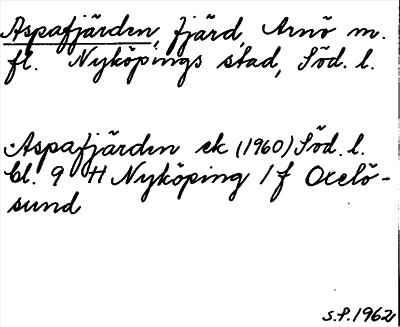 Aspafjärden, fjärd, Arnö m.
fl. Nyköpings stad, Söd. l.
Aspafjärden ek (1960) Söd. l.
bl. 9 H Nyköping 1f Oxelö-
sund
S.P. 1962